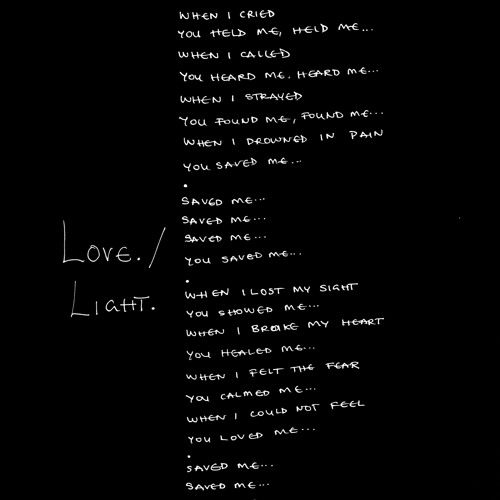 WHEN I CRIED
YOU HELD ME, HELD ME...
WHEN I CALLED
YOU HEARD ME. HEARD ME...
WHEN I STRAYED
YOU FOUND ME, FOUND ME...
WHEN I DROWNED IN PAIN
YOU SAVED ME...
.
SAVED ME...
SAVED ME...
SAVED ME...
YOU SAVED ME...
.
LOVE./
LIGHT.
WHEN I LOST MY SIGHT
YOU SHOWED ME...
WHEN I BROKE MY HEART
YOU HEALED ME...
WHEN I FELT THE FEAR
YOU CALMED ME...
WHEN I COULD NOT FEEL
YOU LOVED ME...
.
SAVED ME...
SAVED ME...